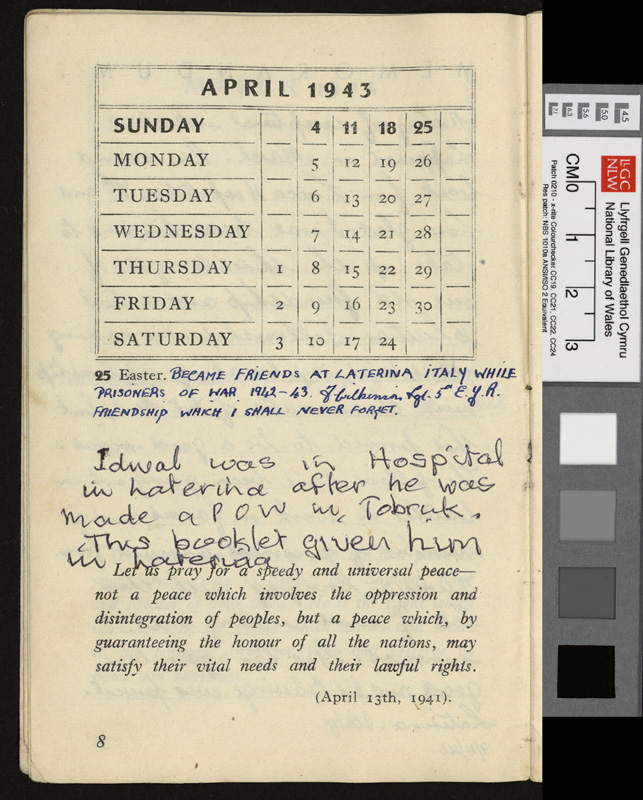 APRIL 1943
SUNDAY 4 11 18 25
MONDAY 5 12 19 26
TUESDAY 6 13 20 27
WEDNESDAY 7 14 21 28
THURSDAY 1 8 15 22 29
FRIDAY 2 9 16 23 30
SATURDAY 3 10 17 24
25 Easter. BECAME FRIENDS AT LATERINA ITALY WHILE
PRISONERS OF WAR 1942-43. Sgt. 5th E.Y.R.
FRIENDSHIP WHICH I SHALL NEVER FORGET.
Idwal was in Hospital
in Laterina after he was
made a POW in Tobruk.
This booklet given him
in Laterina
Let us pray for a speedy and universal peace—
not a peace which involves the oppression and
disintegration of peoples, but a peace which, by
guaranteeing the honour of all the nations, may
satisfy their vital needs and their lawful rights.
(April 13th, 1941).
8
LLGC
NLW
Llyfrgell Genedlaethol Cymru
National Library of Wales
CM 0 1 2 3